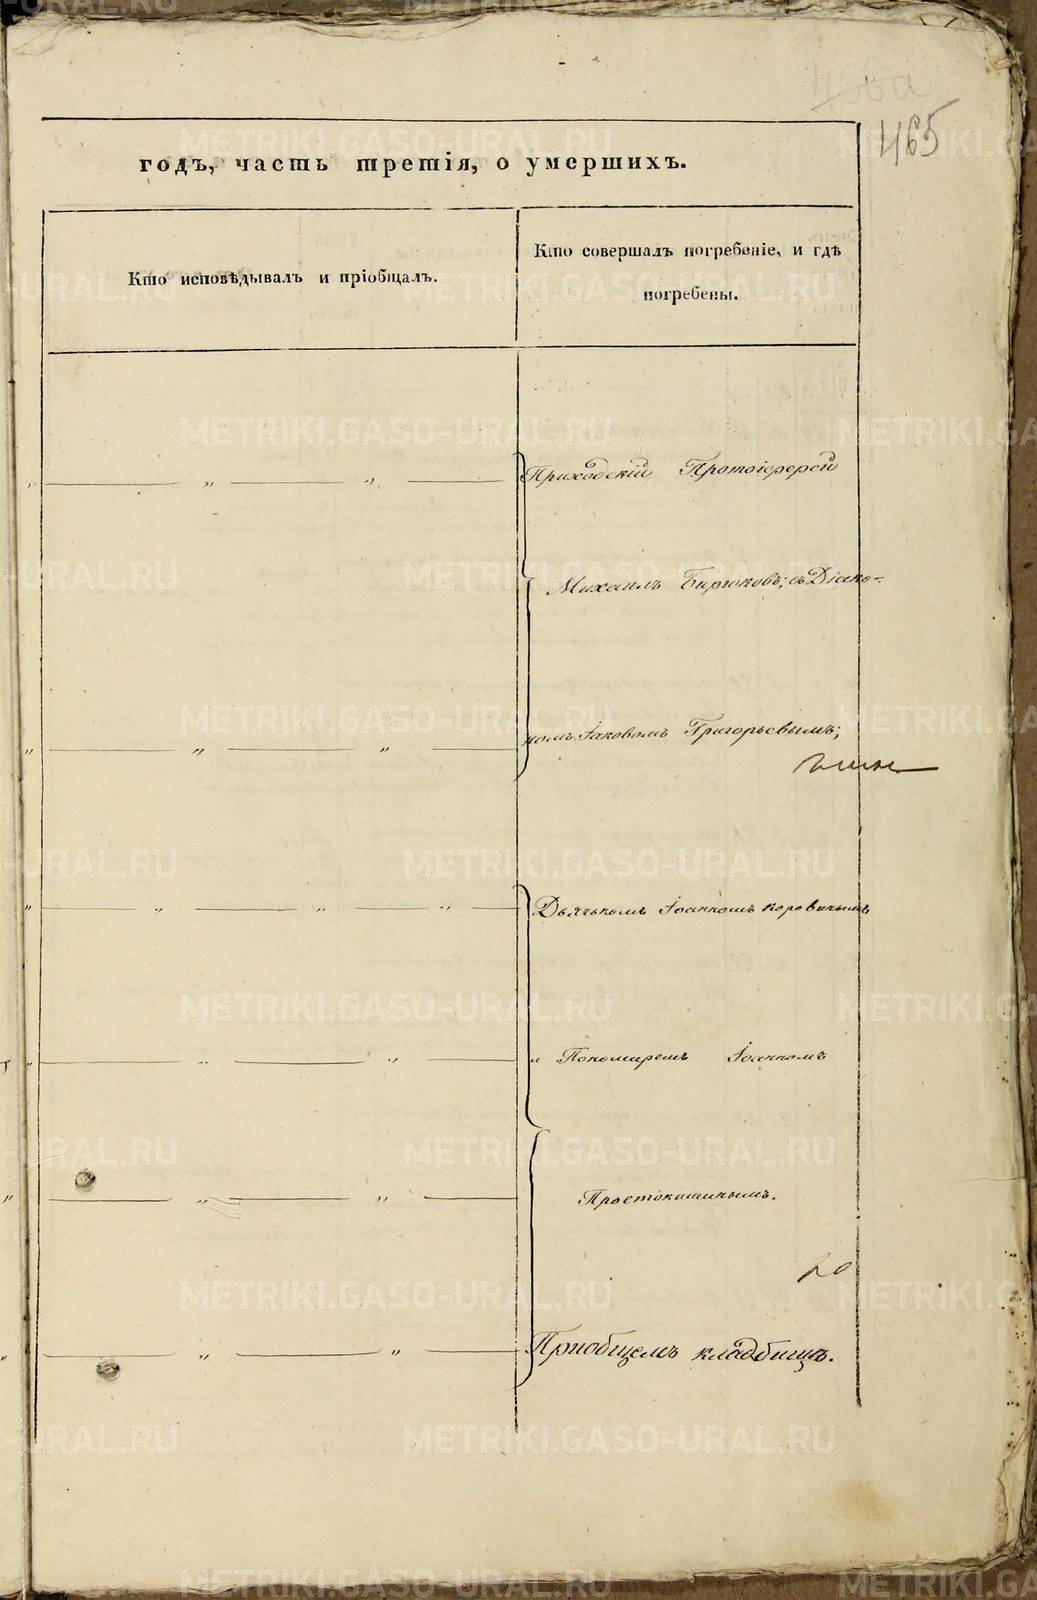 465
годъ, часть третія, о умершихъ.
Кто исповѣдывалъ и пріобщалъ.
Кто совершалъ погребеніе, и гдѣ
погребены.
Приходскій Протоіерей
Михаилъ Бирюковъ; съ Діако-
номъ Іаковомъ Григорьевымъ;
Дьячькомъ Іоанномъ Коровинымъ
и Пономаремъ Іоанномъ
Простокишинымъ.
Приобщемъ кладбищѣ.
METRIKI.GASO-URAL.RU